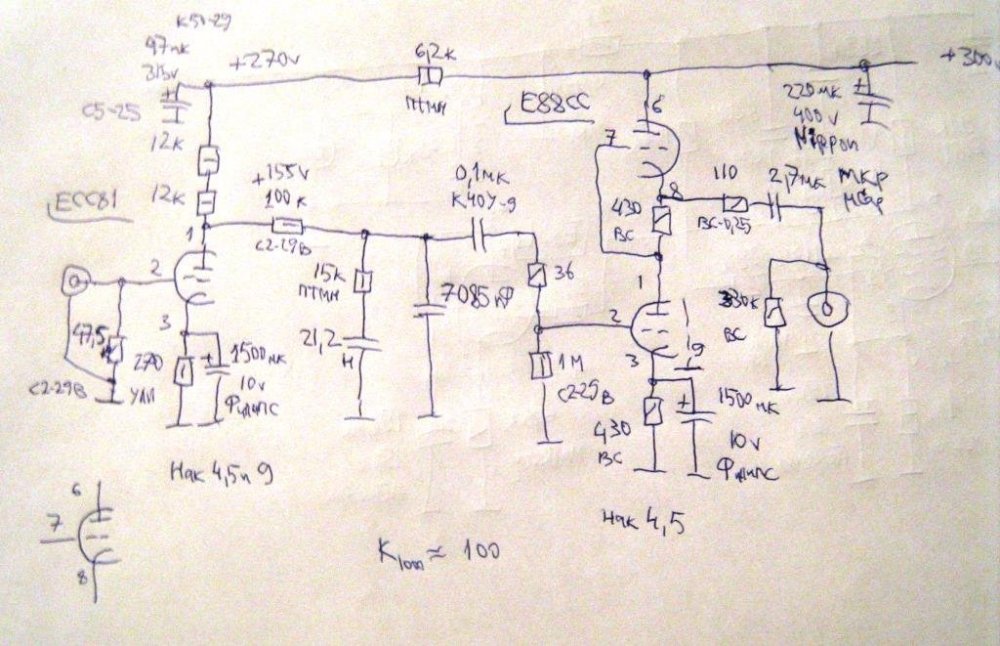 K50-29
47мк
315v
+270v
6,2к
ПТМН
E88CC
+300v
220мк
400v
Nippon
C5-25
12к
12к
ECC81
+155v
100к
C2-29В
0,1мк
К40У-9
6
7
8
110
ВС-0,25
2,7мк
МКР
430
ВС
1
2
3
15к
ПТМН
21,2
Н
7085пФ
36
1
2
3
9
330к
ВС
47,5
C2-29В
270
УЛИ
1500мк
10v
Филипс
1М
C2-29В
430
ВС
1500мк
10v
Филипс
Нак 4,5 и 9
Нак 4,5
6
7
8
K₁₀₀₀ ≈ 100